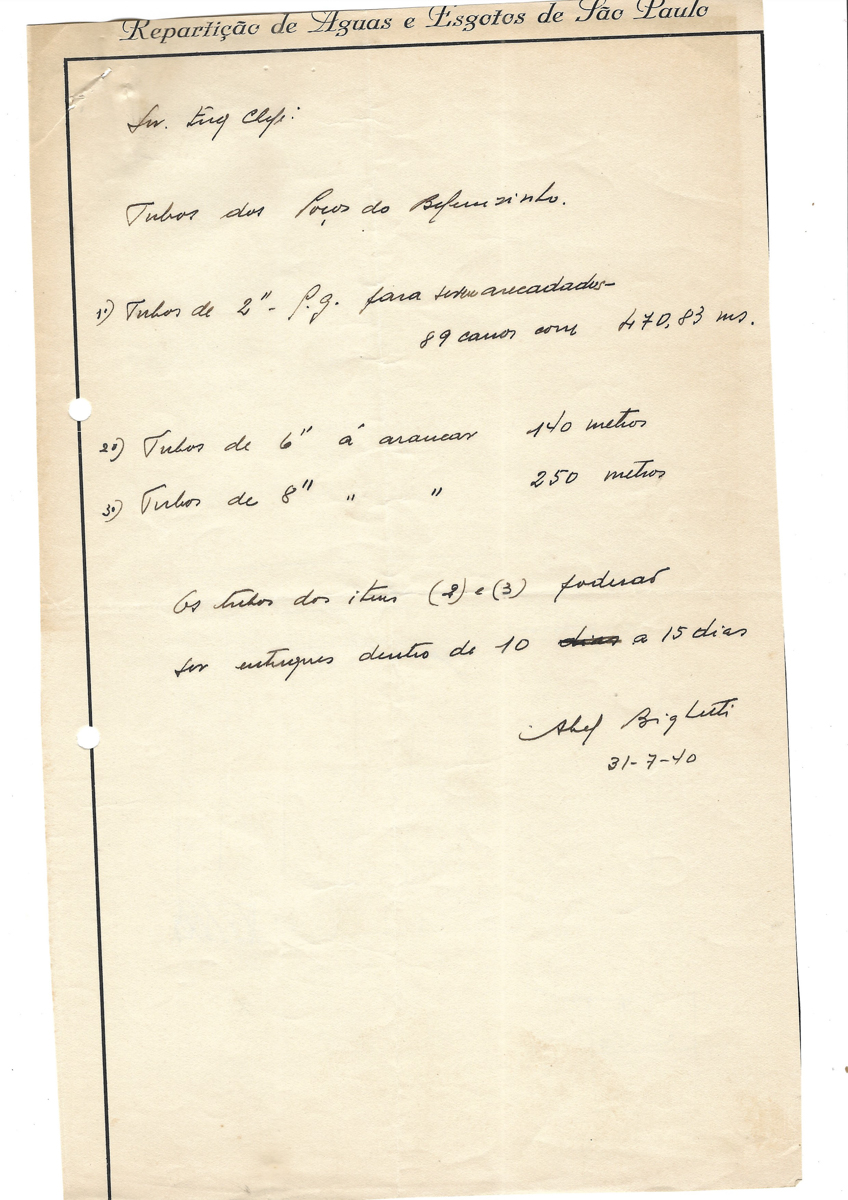 Repartição de Aguas e Esgotos de São Paulo
Snr. Eng Chefe:
Tubos dos Poços do Belemzinho.
1º) Tubos de 2" - P.g. para serem arecadados-
89 canos com 470,83 ms.
2º) Tubos de 6" á arancar 140 metros
3º) Tubos de 8" " " 250 metros
Os tubos dos itens (2) e (3) poderaõ
ser entregues dentro de 10 dias a 15 dias
Abel Bighetti
31-7-40